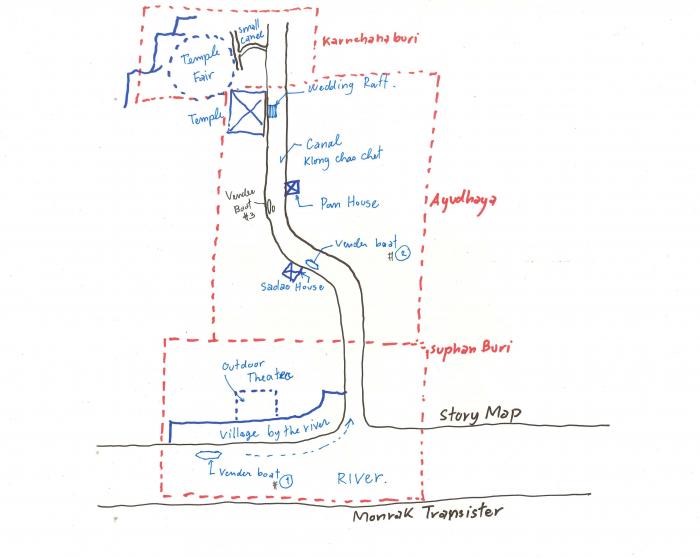 small
canal
Karnchanaburi
Temple
Fair
Wedding Raft.
Temple
Canal
Klong chao chet
Vender
Boat
#3
Pan House
Ayudhaya
Vender boat
#2
Sadao House
Suphan Buri
Outdoor
Theater
Story Map
Village by the river
Vender boat
#1
RIVER.
Monrak Transister